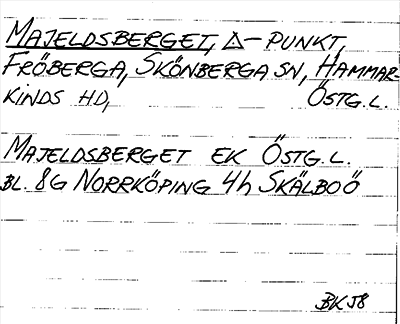 MAJELDSBERGET, Δ-PUNKT,
FRÖBERGA, SKÖNBERGA SN, HAMMAR-
KINDS HD, ÖSTG.L.
MAJELDSBERGET EK ÖSTG.L.
BL. 8G NORRKÖPING 4h SKÄLBOÖ
BK58